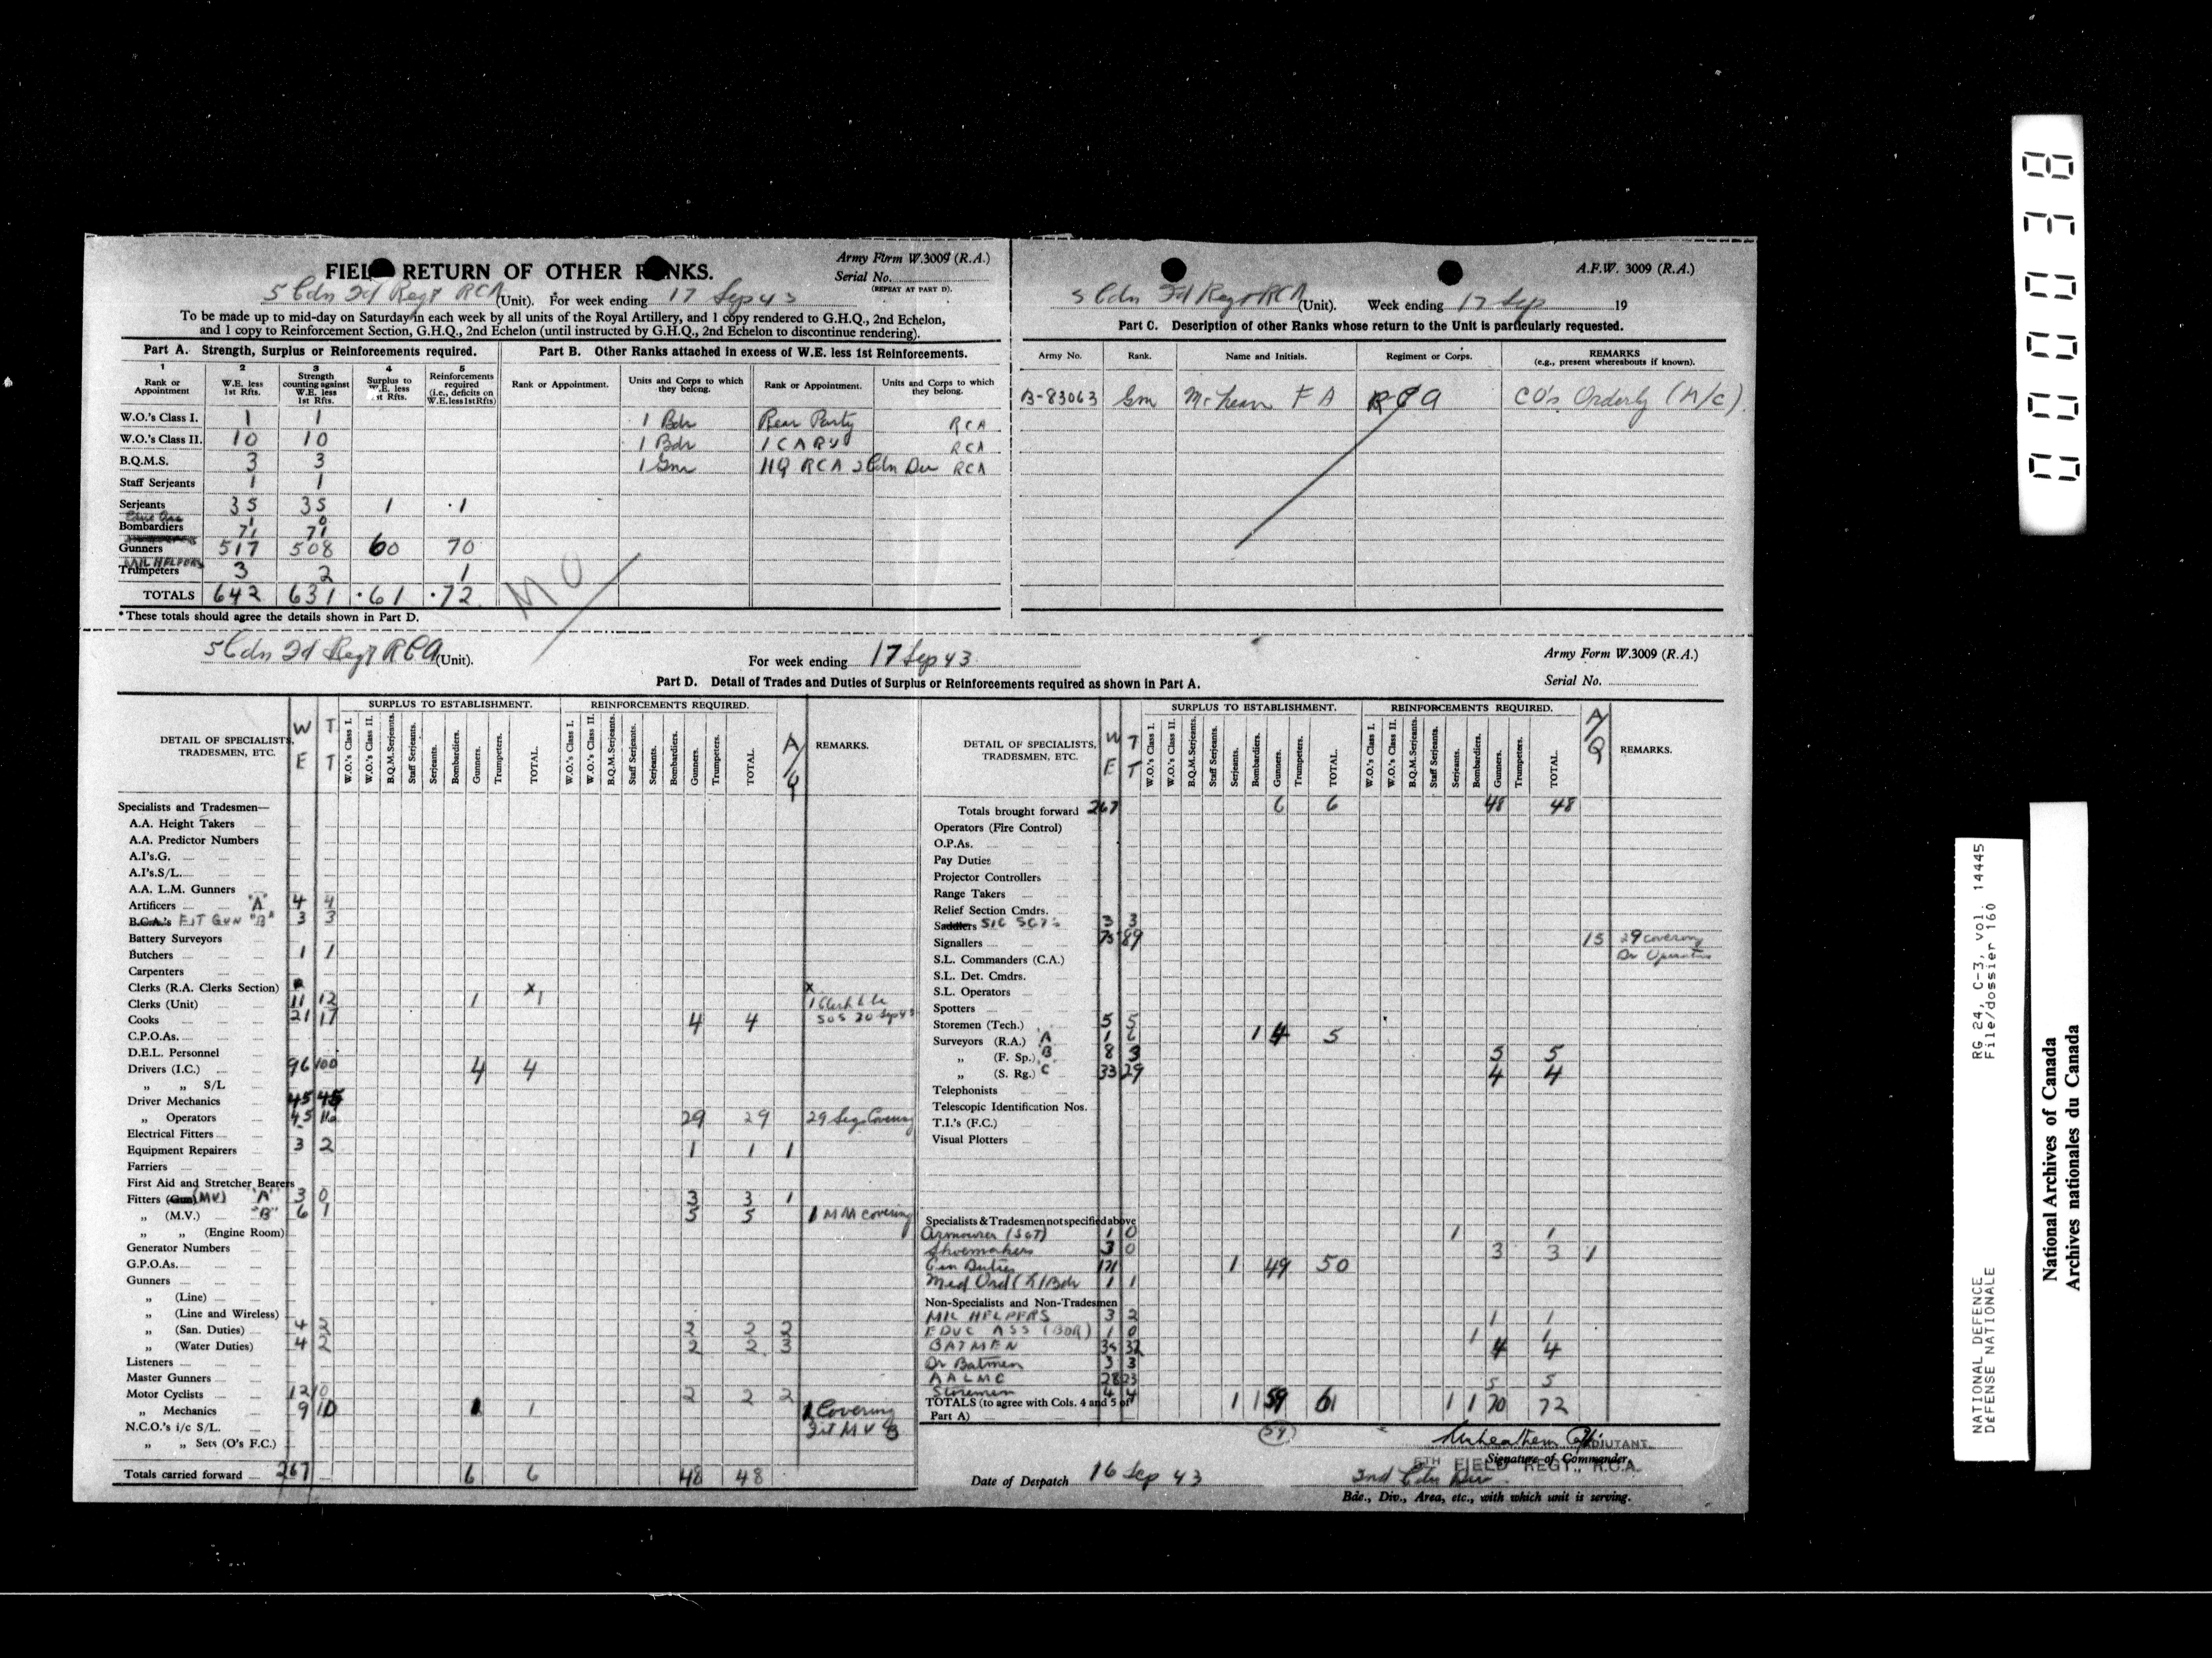 FIELD RETURN OF OTHER RANKS.
Army Form W.3009 (R.A.)
Serial No.
(REPEAT AT PART D).
5 Cdn Fd Regt RCA (Unit). For week ending 17 Sep 43
To be made up to mid-day on Saturday in each week by all units of the Royal Artillery, and 1 copy rendered to G.H.Q., 2nd Echelon,
and 1 copy to Reinforcement Section, G.H.Q., 2nd Echelon (until instructed by G.H.Q., 2nd Echelon to discontinue rendering).
Part A. Strength, Surplus or Reinforcements required.
Part B. Other Ranks attached in excess of W.E. less 1st Reinforcements.
1 2 3 4 5
Rank or Appointment
W.E. less 1st Rfts.
Strength counting against W.E. less 1st Rfts.
Surplus to W.E. less 1st Rfts.
Reinforcements required (i.e., deficits on W.E. less 1st Rfts)
Rank or Appointment.
Units and Corps to which they belong.
Rank or Appointment.
Units and Corps to which they belong.
W.O.'s Class I. 1 1
1 Bdr Rear Party RCA
W.O.'s Class II. 10 10
1 Bdr 1 CARU RCA
B.Q.M.S. 3 3
1 Gnr HQ RCA 2 Cdn Div RCA
Staff Serjeants 1 1
Serjeants 35 35 1 1
1 0
Bombardiers 71 71
Gunners 517 508 60 70
MIL HELPERS
Trumpeters 3 2 1
TOTALS 642 631 61 72
*These totals should agree the details shown in Part D.
A.F.W. 3009 (R.A.)
5 Cdn Fd Regt RCA (Unit). Week ending 17 Sep 19
Part C. Description of other Ranks whose return to the Unit is particularly requested.
Army No. Rank. Name and Initials. Regiment or Corps. REMARKS
(e.g., present whereabouts if known).
B-83063 Gnr McLean F A RCA CO's Orderly (M/C)
5 Cdn Fd Regt RCA (Unit).
For week ending 17 Sep 43
Army Form W.3009 (R.A.)
Serial No.
Part D. Detail of Trades and Duties of Surplus or Reinforcements required as shown in Part A.
DETAIL OF SPECIALISTS, TRADESMEN, ETC.
W E
T T
SURPLUS TO ESTABLISHMENT.
W.O.'s Class I. W.O.'s Class II. B.Q.M.Serjeants. Staff Serjeants. Serjeants. Bombardiers. Gunners. Trumpeters. TOTAL.
REINFORCEMENTS REQUIRED.
W.O.'s Class I. W.O.'s Class II. B.Q.M.Serjeants. Staff Serjeants. Serjeants. Bombardiers. Gunners. Trumpeters. TOTAL.
A/Q
REMARKS.
Specialists and Tradesmen—
A.A. Height Takers
A.A. Predictor Numbers
A.I's.G.
A.I's.S/L.
A.A. L.M. Gunners
Artificers "A" 4 4
B.C.A.'s FIT GUN "B" 3 3
Battery Surveyors
Butchers 1 1
Carpenters
Clerks (R.A. Clerks Section)
Clerks (Unit) 11 12 1 x1 x 1 Clerk to be
Cooks 21 17 4 4 SOS 20 Sep 43
C.P.O.As.
D.E.L. Personnel
Drivers (I.C.) 96 100 4 4
" " S/L
Driver Mechanics 45 45
" Operators 45 16 29 29 29 Sigs Covering
Electrical Fitters
Equipment Repairers 3 2 1 1 1
Farriers
First Aid and Stretcher Bearers
Fitters (Gun) (MV) "A" 3 0 3 3 1
" (M.V.) "B" 6 1 5 5 1 MM covering
" " (Engine Room)
Generator Numbers
G.P.O.As.
Gunners
" (Line)
" (Line and Wireless)
" (San. Duties) 4 2 2 2 2
" (Water Duties) 4 2 2 2 3
Listeners
Master Gunners
Motor Cyclists 12 10 2 2 2
" Mechanics 9 10 1 1 1 Covering
N.C.O.'s i/c S/L. Fit MV B
" " Sets (O's F.C.)
Totals carried forward 267 6 6 48 48
DETAIL OF SPECIALISTS, TRADESMEN, ETC.
W E
T T
SURPLUS TO ESTABLISHMENT.
W.O.'s Class I. W.O.'s Class II. B.Q.M.Serjeants. Staff Serjeants. Serjeants. Bombardiers. Gunners. Trumpeters. TOTAL.
REINFORCEMENTS REQUIRED.
W.O.'s Class I. W.O.'s Class II. B.Q.M.Serjeants. Staff Serjeants. Serjeants. Bombardiers. Gunners. Trumpeters. TOTAL.
A/Q
REMARKS.
Totals brought forward 267 6 6 48 48
Operators (Fire Control)
O.P.As.
Pay Duties
Projector Controllers
Range Takers
Relief Section Cmdrs.
Saddlers SIG SGTS 3 3
Signallers 75 89 15 29 covering
S.L. Commanders (C.A.) Dr Operators
S.L. Det. Cmdrs.
S.L. Operators
Spotters
Storemen (Tech.) 5 5
Surveyors (R.A.) 'A' 1 6 1 4 5
" (F. Sp.) 'B' 8 3 5 5
" (S. Rg.) 'C' 33 29 4 4
Telephonists
Telescopic Identification Nos.
T.I.'s (F.C.)
Visual Plotters
Specialists & Tradesmen not specified above
Armourer (SGT) 1 0 1 1
Shoemakers 3 0 3 3 1
Gen Duties 171 1 49 50
Med Ord (1) Bdr 1 1
Non-Specialists and Non-Tradesmen
MIL HELPERS 3 2 1 1
EDUC ASS (BDR) 1 0 1 1
BATMEN 32 4 4
Dr Batmen 3 3
AALMG 28 23 5 5
Storemen 4 4
TOTALS (to agree with Cols. 4 and 5 of Part A) 1 1 59 61 1 1 70 72
59
ADJUTANT
5TH FIELD REGT., R.C.A.
Signature of Commander.
Date of Despatch 16 Sep 43
2nd Cdn Div
Bde., Div., Area, etc., with which unit is serving.
000038
NATIONAL DEFENCE
DÉFENSE NATIONALE
RG 24, C-3, vol. 14445
File/dossier 160
National Archives of Canada
Archives nationales du Canada